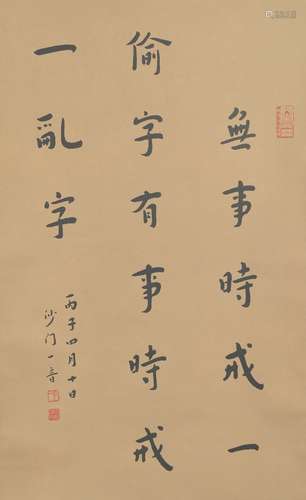 無事時戒一
偷字有事時戒
一亂字
丙子四月十日
沙门一音